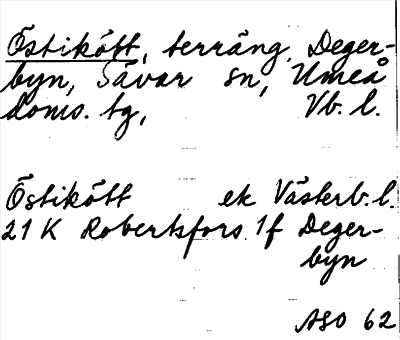 Östikått, terräng, Deger-
byn, Sävar sn, Umeå
doms. tg, Vb. l.
Östikått ek Västerb. l.
21 K Robertsfors 1f Deger-
byn
ASO 62